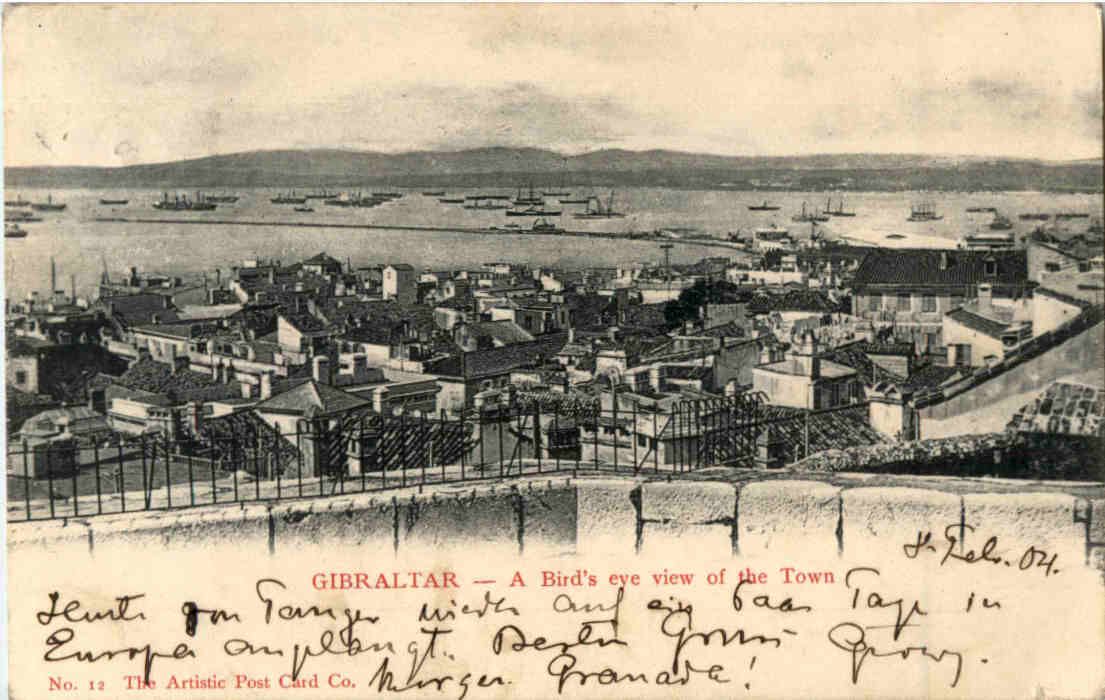 Feb. 04.
GIBRALTAR — A Bird's eye view of the Town
Heute von Tanger wieder auf ein Paar Tage in
Europa angelangt. Besten Gruss Georg.
Morgen Granada!
No. 12 The Artistic Post Card Co.